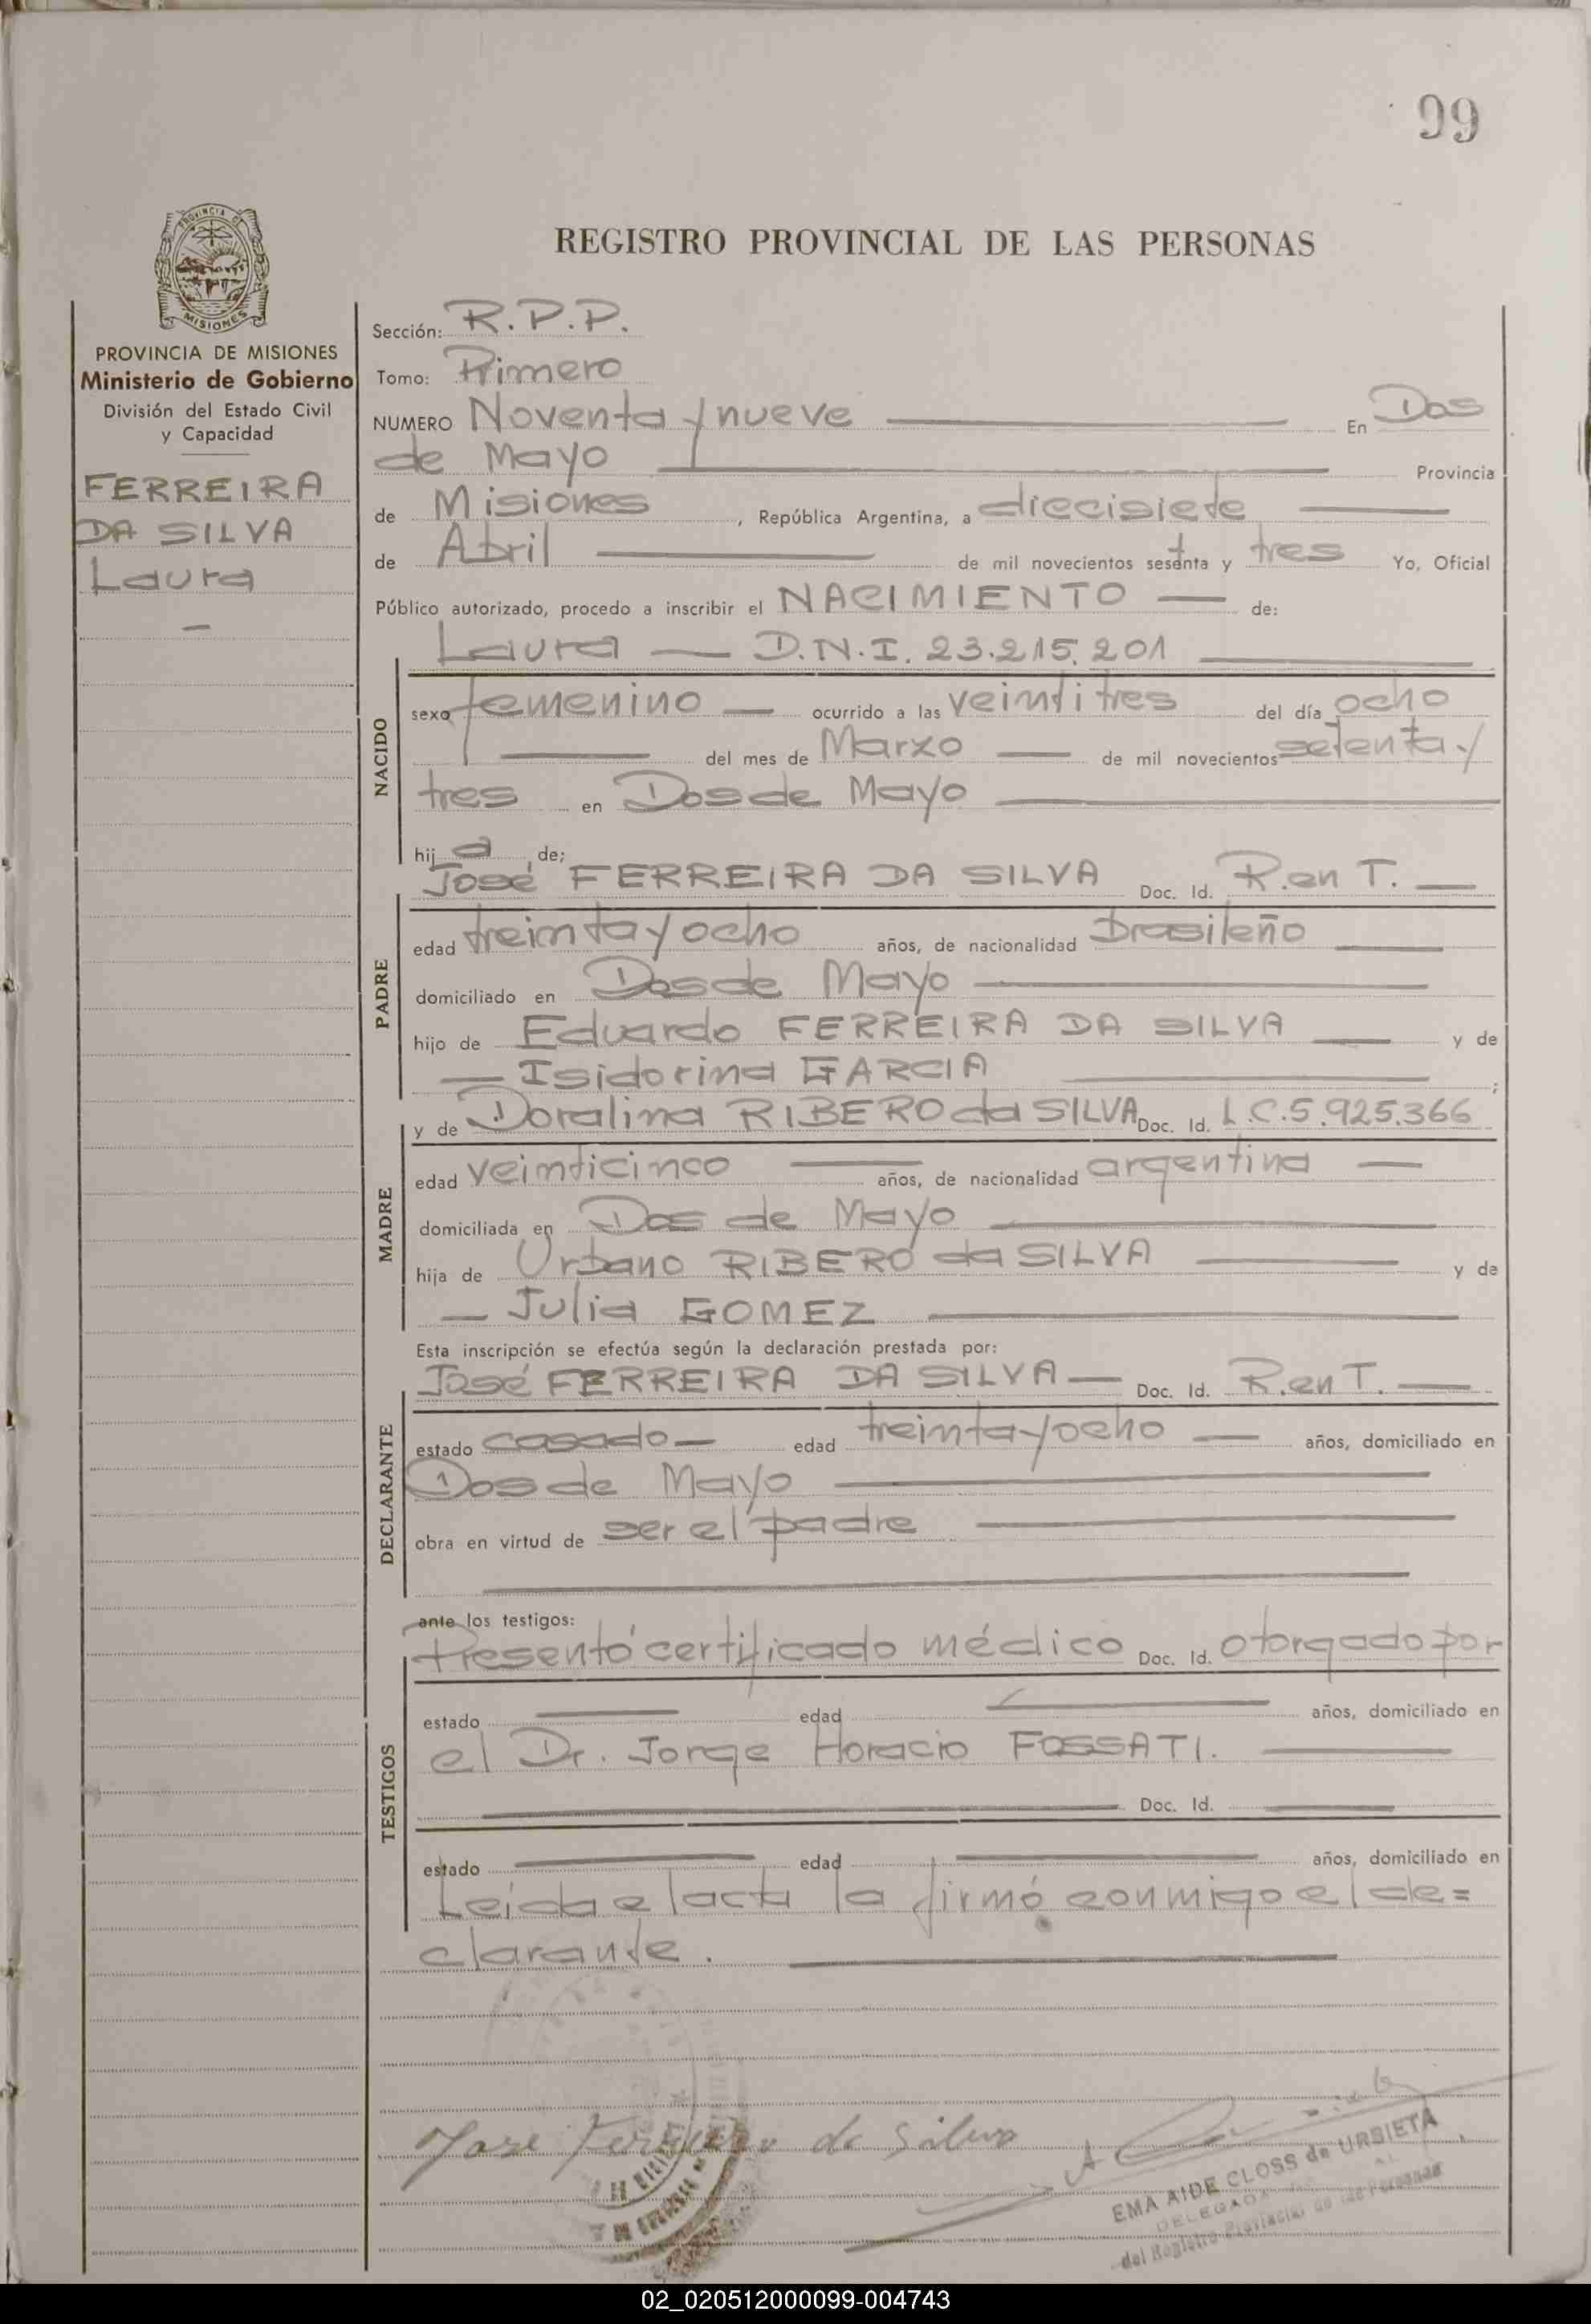 99
REGISTRO PROVINCIAL DE LAS PERSONAS
PROVINCIA DE
MISIONES
PROVINCIA DE MISIONES
Ministerio de Gobierno
División del Estado Civil
y Capacidad
FERREIRA
DA SILVA
Laura
Sección: R.P.P.
Tomo: Primero
NUMERO Noventa y nueve En Dos
de Mayo Provincia
de Misiones, República Argentina, a diecisiete
de Abril de mil novecientos setenta y tres Yo, Oficial
Público autorizado, procedo a inscribir el NACIMIENTO de:
Laura — D.N.I. 23.215.201
NACIDO
sexo femenino — ocurrido a las veintitres del día ocho
del mes de Marzo de mil novecientos setenta y
tres en Dos de Mayo
hija de;
José FERREIRA DA SILVA Doc. Id. R.en T.
PADRE
edad treinta y ocho años, de nacionalidad brasileño
domiciliado en Dos de Mayo
hijo de Eduardo FERREIRA DA SILVA y de
— Isidorina GARCIA ;
y de Doralina RIBERO da SILVA Doc. Id. L.C.5.925.366
MADRE
edad veinticinco años, de nacionalidad argentina
domiciliada en Dos de Mayo
hija de Urbano RIBERO da SILVA y de
— Julia GOMEZ
Esta inscripción se efectúa según la declaración prestada por:
José FERREIRA DA SILVA — Doc. Id. R.en T.
DECLARANTE
estado casado — edad treinta y ocho años, domiciliado en
Dos de Mayo
obra en virtud de ser el padre
ante los testigos:
Presentó certificado médico Doc. Id. otorgado por
TESTIGOS
estado edad años, domiciliado en
el Dr. Jorge Horacio FOSSATI.
Doc. Id.
estado edad años, domiciliado en
Leida el acta la firmó conmigo el de=
clarante.
Jose Ferreira da Silva
EMA AIDE CLOSS de URBIETA
DELEGADA
del Registro Provincial de las Personas
02_020512000099-004743